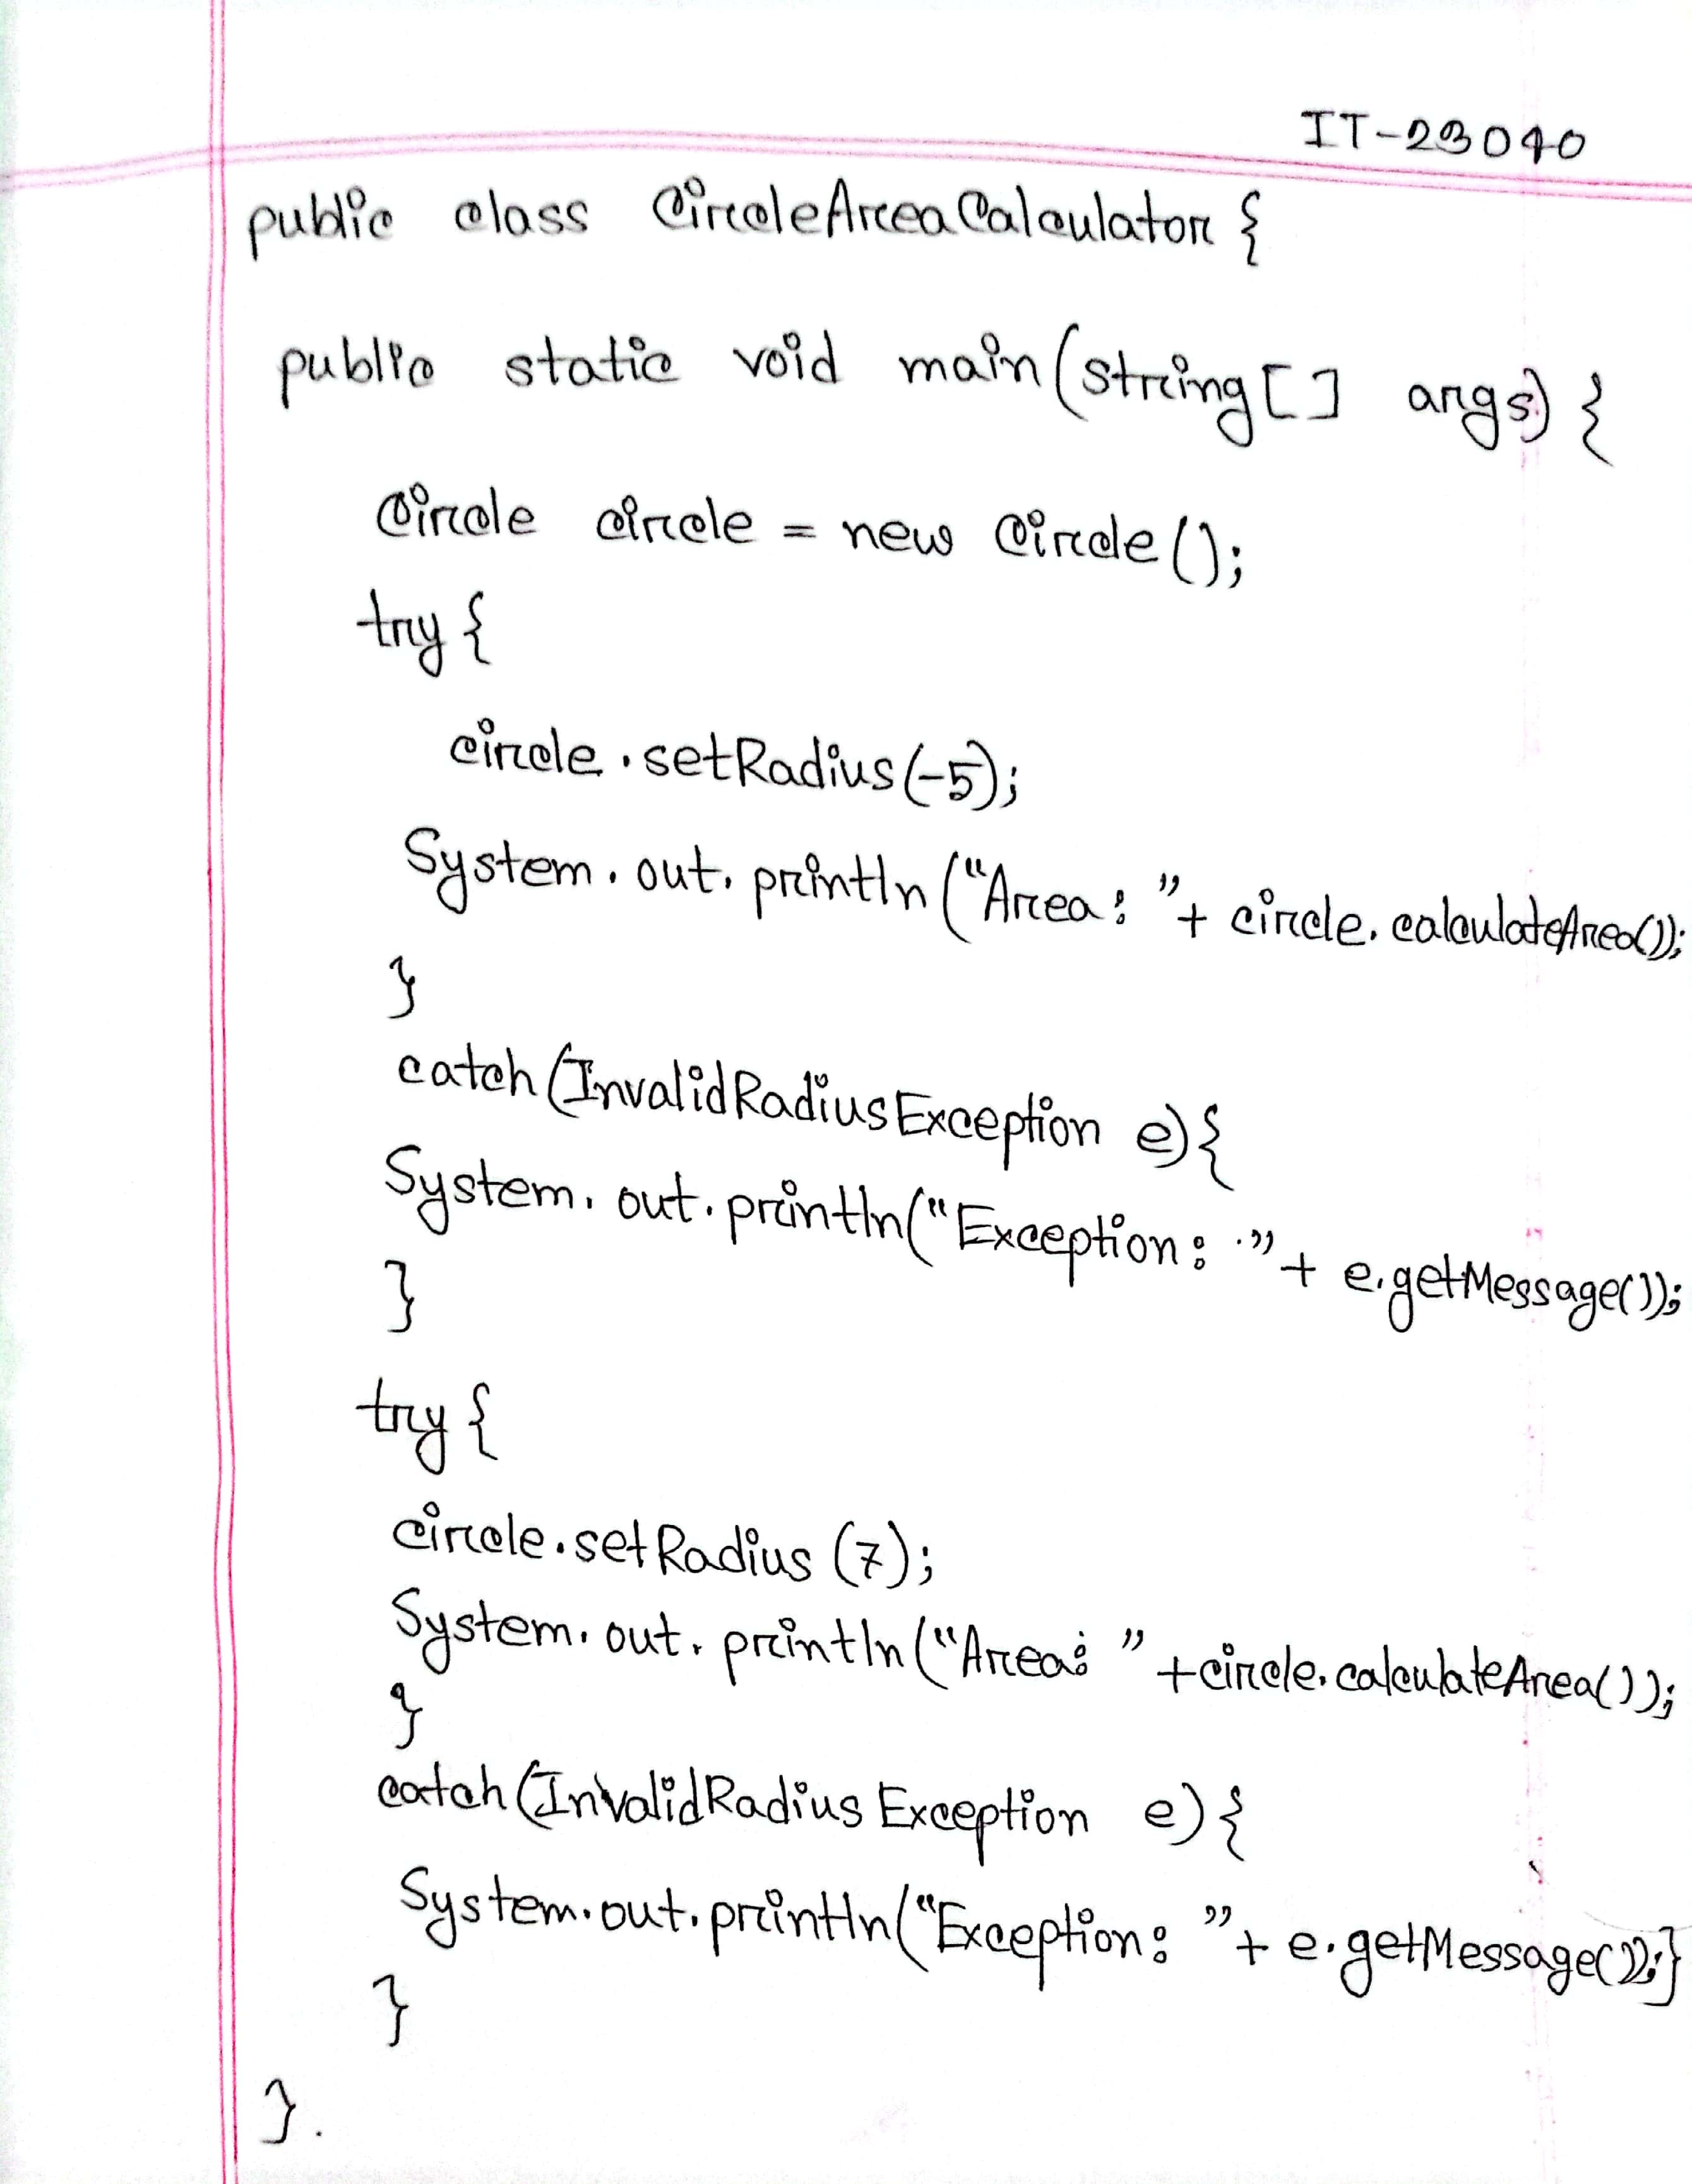 IT-23040
public class CircleAreaCalculator {
public static void main(string[] args) {
Circle circle = new Circle();
try {
circle.setRadius(-5);
System.out.println("Area: "+ circle.calculateArea());
}
catch(InvalidRadiusException e){
System.out.println("Exception: ."+ e.getMessage());
}
try {
circle.setRadius(7);
System.out.println("Area: "+circle.calculateArea());
}
catch(InvalidRadiusException e){
System.out.println("Exception: "+ e.getMessage());}
}
}.